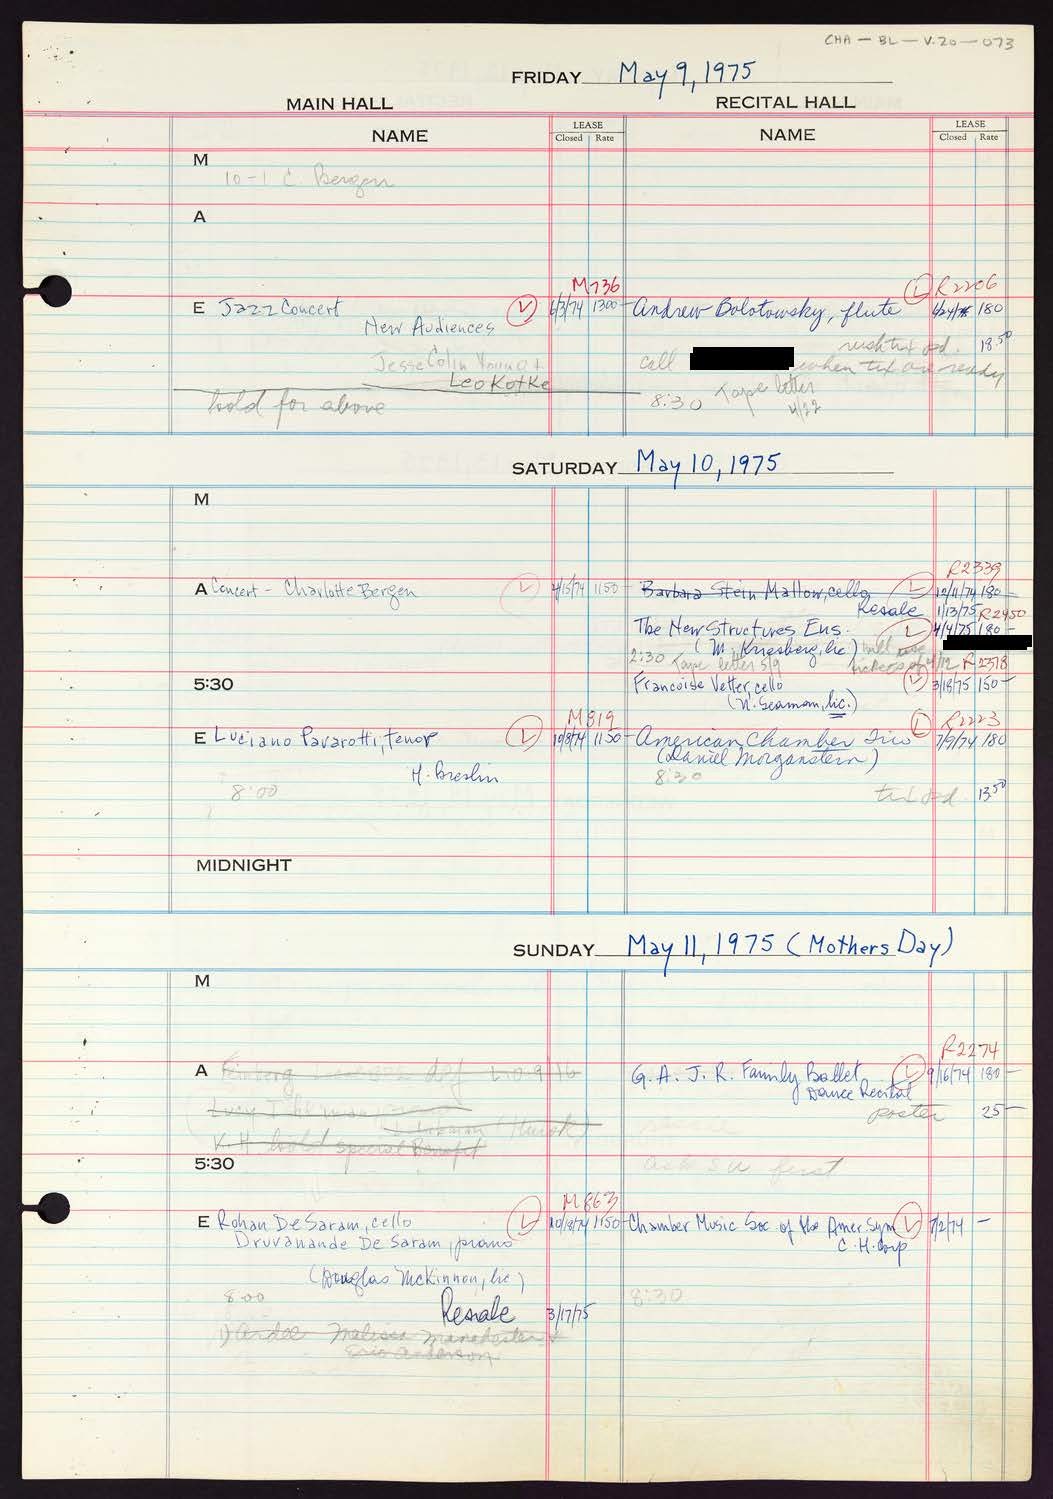 CHA - BL - V.20 - 073
FRIDAY May 9, 1975
MAIN HALL
RECITAL HALL
NAME
LEASE
Closed Rate
NAME
LEASE
Closed Rate
M
10-1 C. Bergen
A
M736
R2206
E Jazz Concert L 6/3/74 1300-
Andrew Bolotowsky, flute L 180
New Audiences
tix pd. 18.50
Jesse Colin Young +
call when tix are ready
Leo Kotke
Tape letter
hold for above
8:30 4/22
SATURDAY May 10, 1975
M
R2339
A Concert - Charlotte Bergen L 4/15/74 1150-
Barbara Stein Mallow, cello L 12/11/74 180-
Resale 1/13/75 R2450
The New Structures Ens. L 4/4/75 180-
(M. Kriesberg, lic) will
2:30 Tape letter 5/9 4/12 R2378
5:30
Francoise Vetter, cello L 3/18/75 150-
(N. Seaman, lic.)
M819
R2223
E Luciano Pavarotti, tenor L 10/8/74 1150-
American Chamber Trio L 7/9/74 180
(Daniel Morganstern)
H. Breslin
8:30
8:00
tix pd. 13.50
MIDNIGHT
SUNDAY May 11, 1975 (Mothers Day)
M
R2274
A Feinberg
G. A. J. R. Family Ballet L 9/16/74 180-
Dance Recital
poster 25-
V.H. hold special Benefit
5:30
ask su first
M863
E Rohan De Saram, cello L 10/18/74 1150-
Chamber Music Soc of the Amer Sym L 7/2/74 -
Druvanande De Saram, piano
C. H. Corp
(Douglas McKinnon, lic)
8:00
8:30
Resale 3/17/75
Melissa Manchester +
Eric Anderson